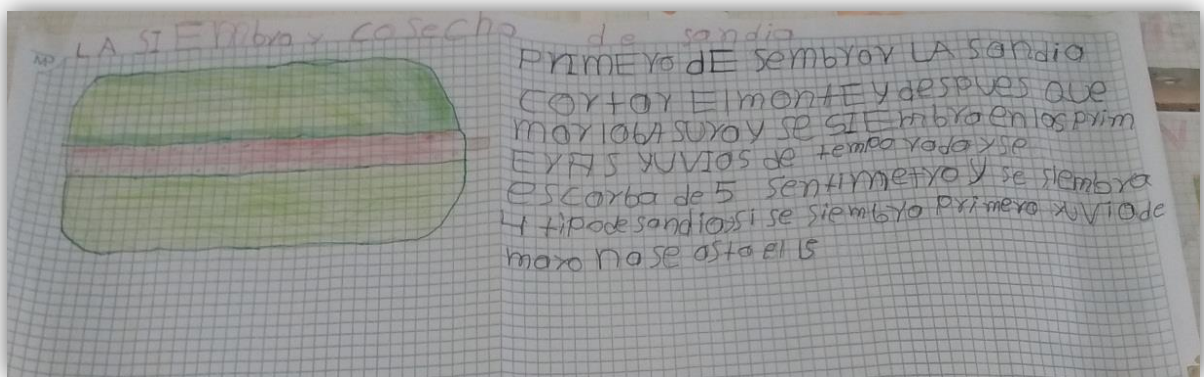 LA SIEmbra y cosecha de sandia
PrIMEro dE sembrar LA sandia
cortar El montE y despues que
mar la bAsura y se sIEmbra en las prim
ErAs lluvias de
escarba de 5 sentimetro y se siembra
4 tipo de sandias i se siembra primera lluvia de
mayo nase asta el 15